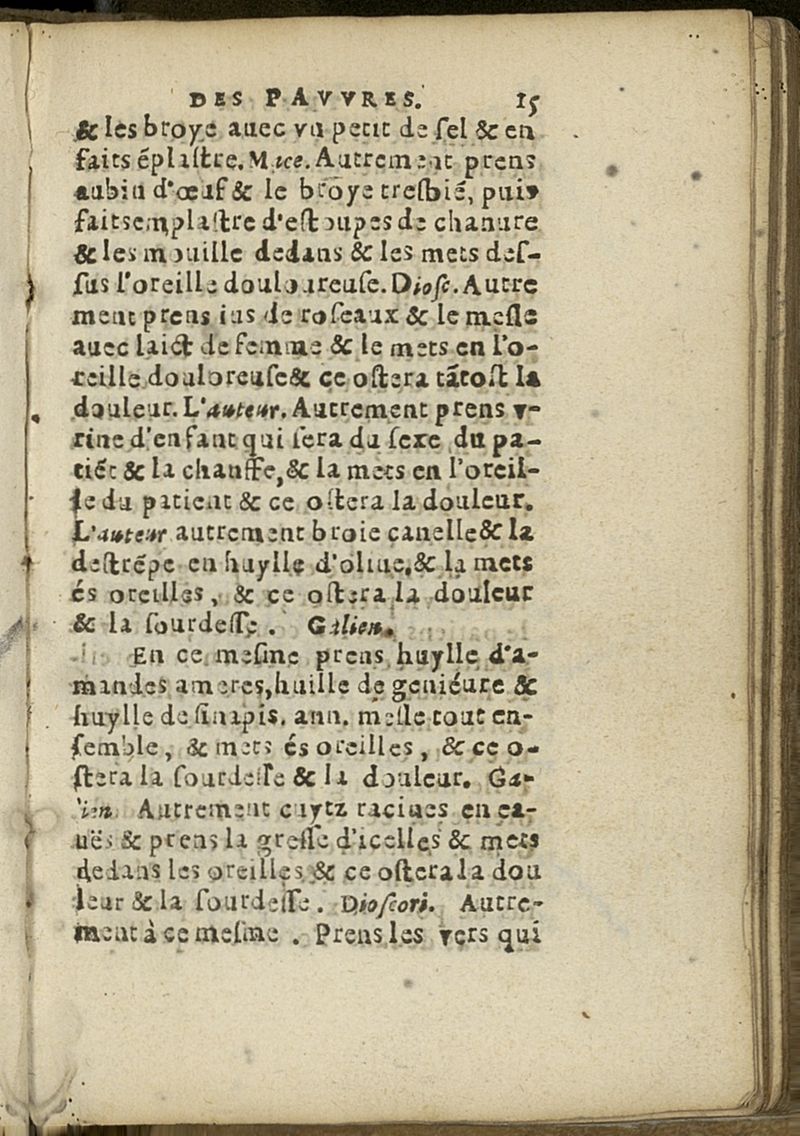 DES PAVVRES. 15
& les broye auec vn petit de ſel & en
faits éplaſtre. Mace. Autrement prens
aubin d'œuf & le broye treſbiē, puis
faitsemplaſtre d'eſtoupes de chanure
& les mouille dedans & les mets deſ-
ſus l'oreille douloureuſe. Dioſc. Autre
ment prens ius de roſeaux & le meſle
auec laict de femme & le mets en l'o-
reille douloreuſe& ce oſtera tātoſt la
douleur. L'auteur. Autrement prens v-
rine d'enfant qui ſera du ſexe du pa-
tiēt & la chauffe, & la mets en l'oreil-
le du patient & ce oſtera la douleur.
L'auteur autrement broie canelle& la
deſtrēpe en huylle d'oliue,& la mets
és oreilles, & ce oſtera la douleur
& la ſourdeſſe. Galien.
En ce meſme prens huylle d'a-
mandes ameres,huille de geniéure &
huylle de ſinapis. ann. meſle tout en-
ſemble, & mets és oreilles, & ce o-
ſtera la ſourdeſſe & la douleur. Ga-
lien. Autrement cuytz racines en ea-
uës & prens la greſſe d'icelles & mets
dedans les oreilles & ce oſtera la dou
leur & la ſourdeſſe. Dioſcori. Autre-
ment à ce meſme. Prens les vers qui